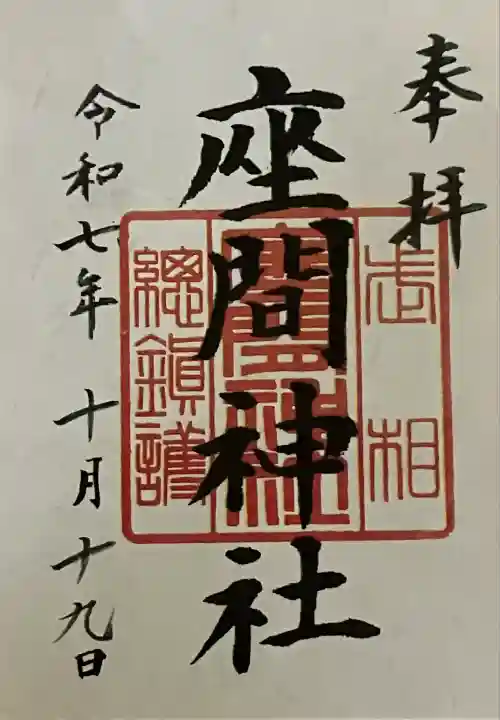 奉拝
武相
座間神社
座間神社
總鎮護
令和七年 十月十九日